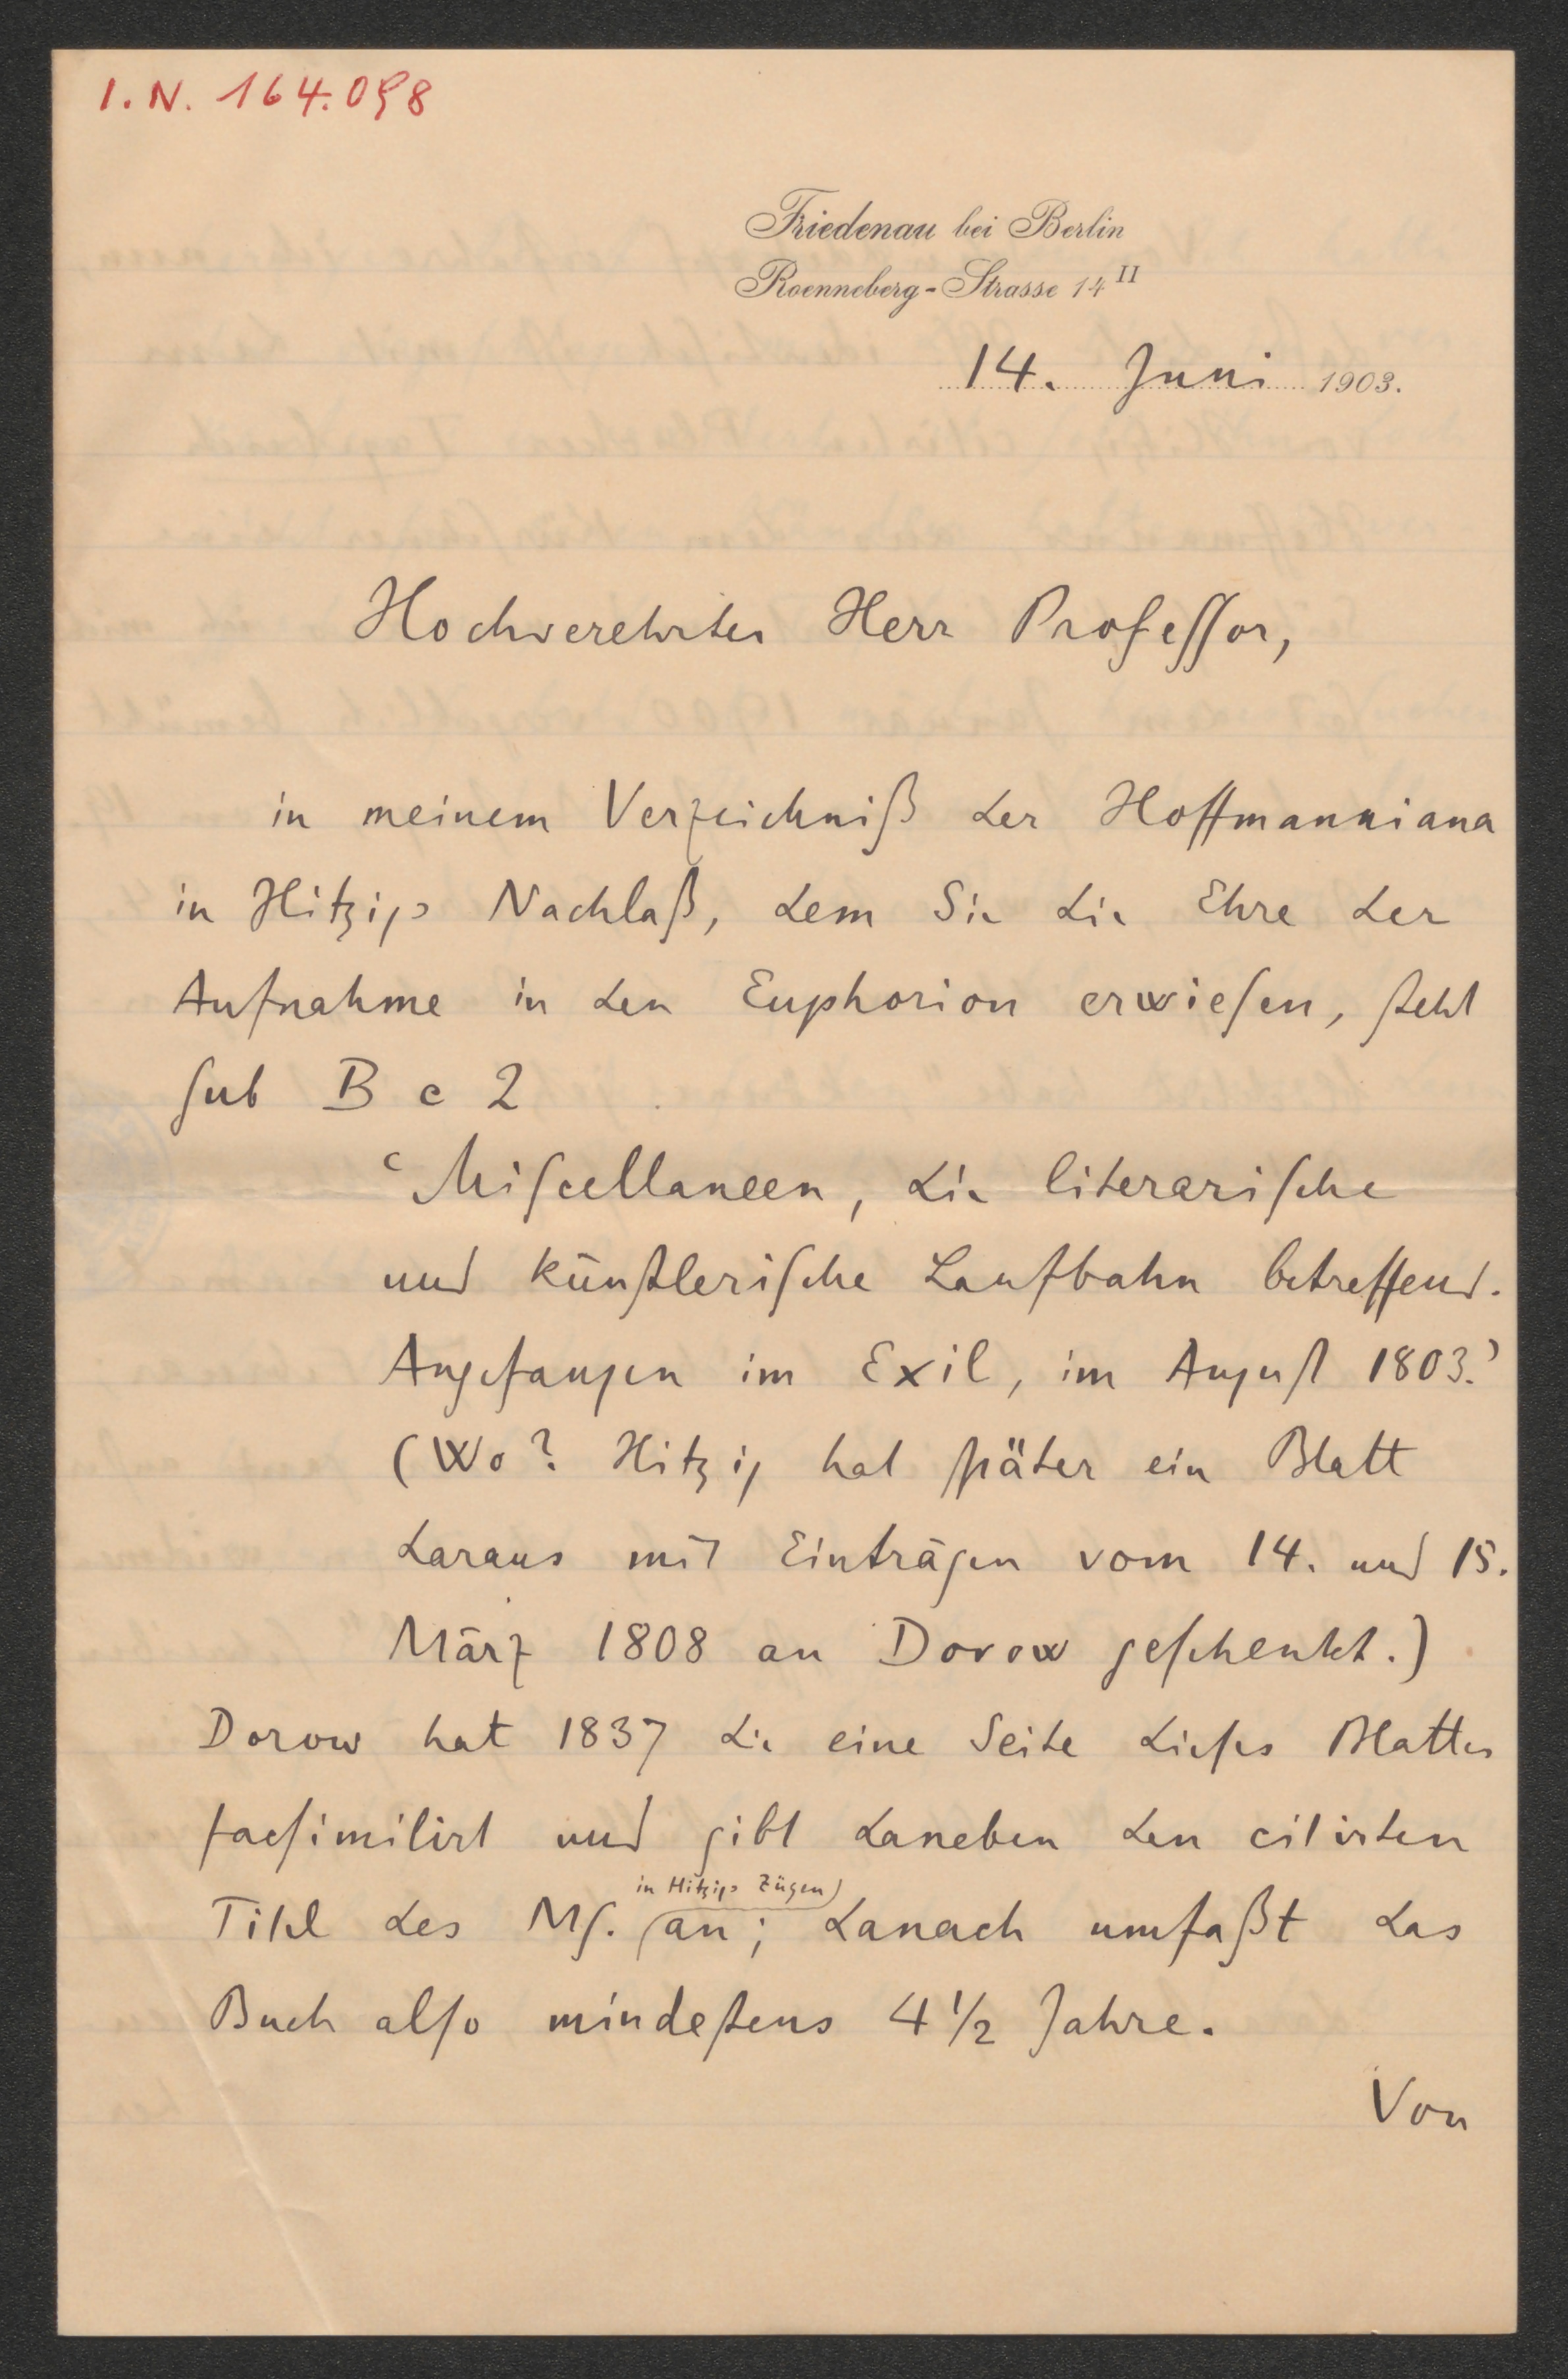 I. N. 164.098
Friedenau bei Berlin
Roenneberg-Strasse 14 II
14. Juni 1903.
Hochverehrter Herr Professor,
in meinem Verzeichniß der Hoffmanniana
in Hitzigs Nachlaß, dem Sie die Ehre der
Aufnahme in den Euphorion erwiesen, steht
sub B c 2
‘Miscellaneen, die literarische
und künstlerische Laufbahn betreffend.
Angefangen im Exil, im August 1803.’
(Wo? Hitzig hat später ein Blatt
daraus mit Einträgen vom 14. und 15.
März 1808 an Dorow geschenkt.)
Dorow hat 1837 die eine Seite dieses Blattes
facsimilirt und gibt daneben den citirten
in Hitzigs Zügen)
Titel des Ms. (an; danach umfaßt das
Buch also mindestens 4 1/2 Jahre.
Von